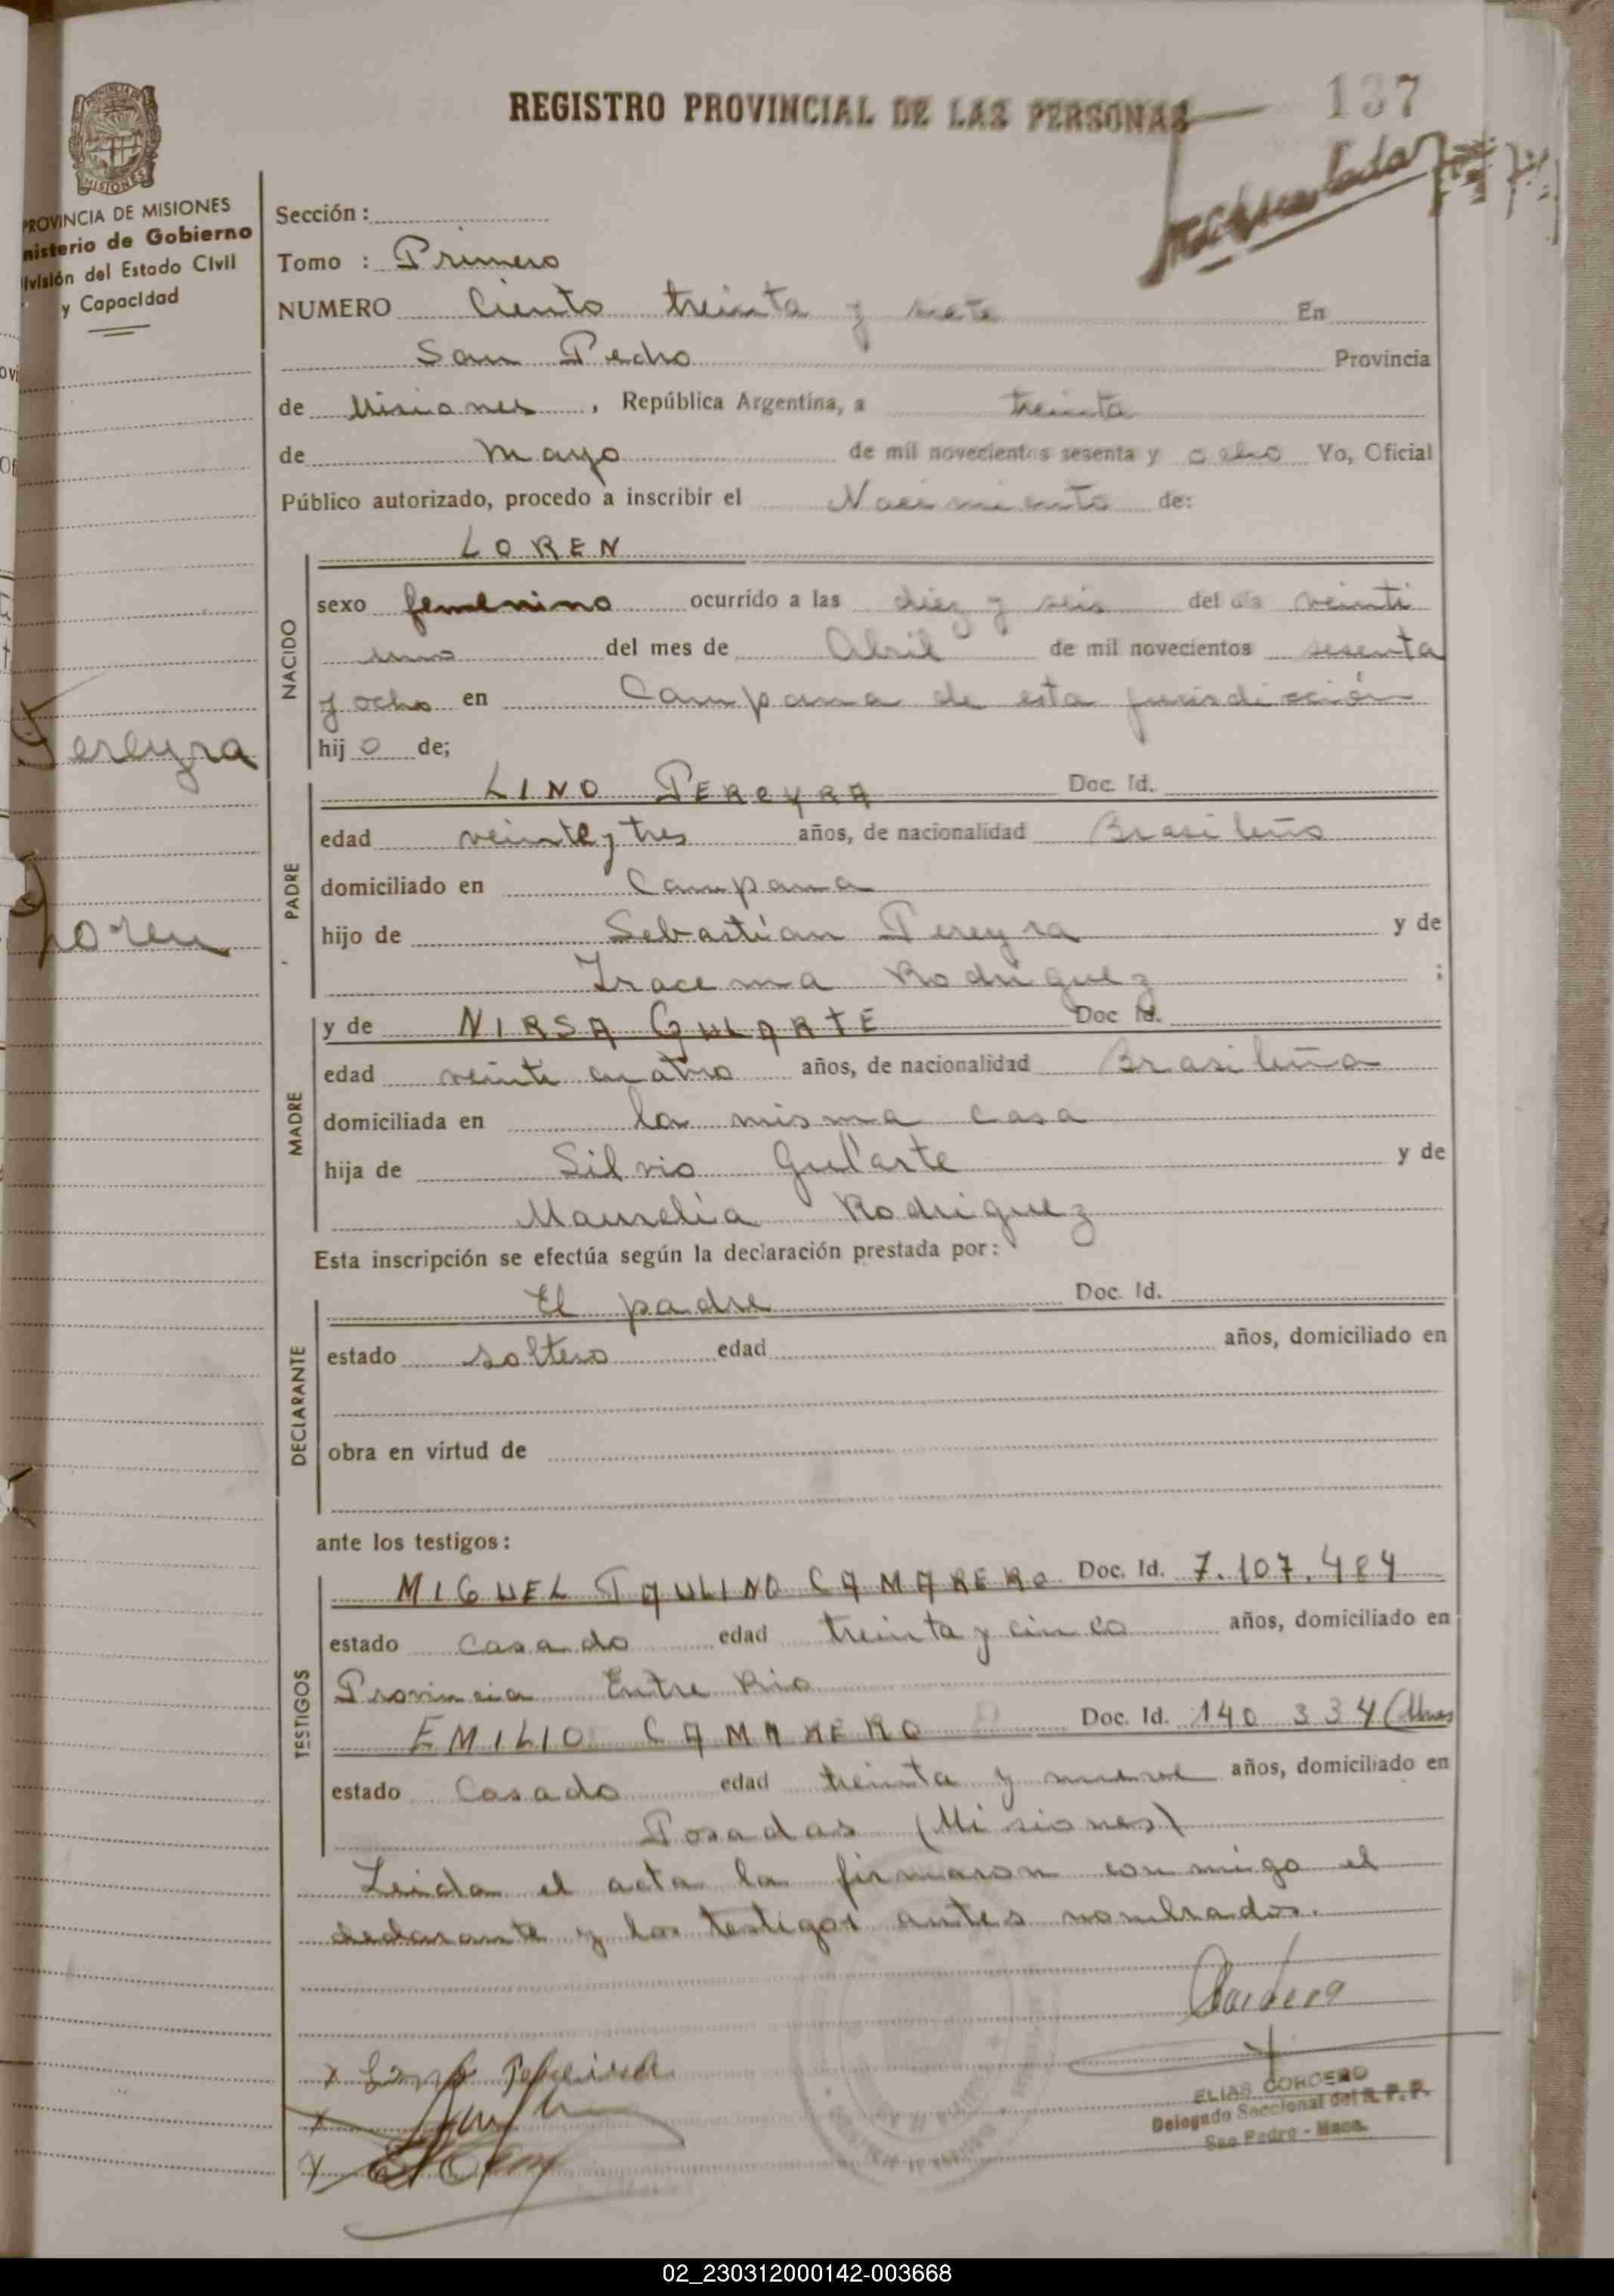 REGISTRO PROVINCIAL DE LAS PERSONAS
137
PROVINCIA DE MISIONES
nisterio de Gobierno
ivisión del Estado Civil
y Capacidad
Sección:
Tomo : Primero
NUMERO Ciento treinta y siete En
San Pedro Provincia
de Misiones, República Argentina, a treinta
de mayo de mil novecientos sesenta y ocho Yo, Oficial
Público autorizado, procedo a inscribir el Nacimiento de:
NACIDO
LOREN
sexo femenino ocurrido a las diez y seis del día veinti
uno del mes de Abril de mil novecientos sesenta
y ocho en Campana de esta jurisdicción
hij o de;
Pereyra
Loren
PADRE
LINO PEREYRA Doc. Id.
edad veinte y tres años, de nacionalidad Brasileño
domiciliado en Campana
hijo de Sebastían Pereyra y de
Iracema Rodriguez ;
MADRE
y de NIRSA GULARTE Doc Id.
edad veinte cuatro años, de nacionalidad Brasileña
domiciliada en la misma casa
hija de Silvio Gularte y de
Maurelia Rodriguez
Esta inscripción se efectúa según la declaración prestada por:
DECLARANTE
El padre Doc. Id.
estado soltero edad años, domiciliado en
obra en virtud de
ante los testigos:
TESTIGOS
MIGUEL PAULINO CAMARERO Doc. Id. 7.107.484
estado casado edad treinta y cinco años, domiciliado en
Provincia Entre Rio
EMILIO CAMARERO Doc. Id. 140 334
estado Casado edad treinta y nueve años, domiciliado en
Posadas (Misiones)
Leida el acta la firmaron conmigo el
declarante y los testigos antes nombrados.
ELIAS CORDERO
Delegado Seccional del R. P. P.
San Pedro - Mnes.
02_230312000142-003668